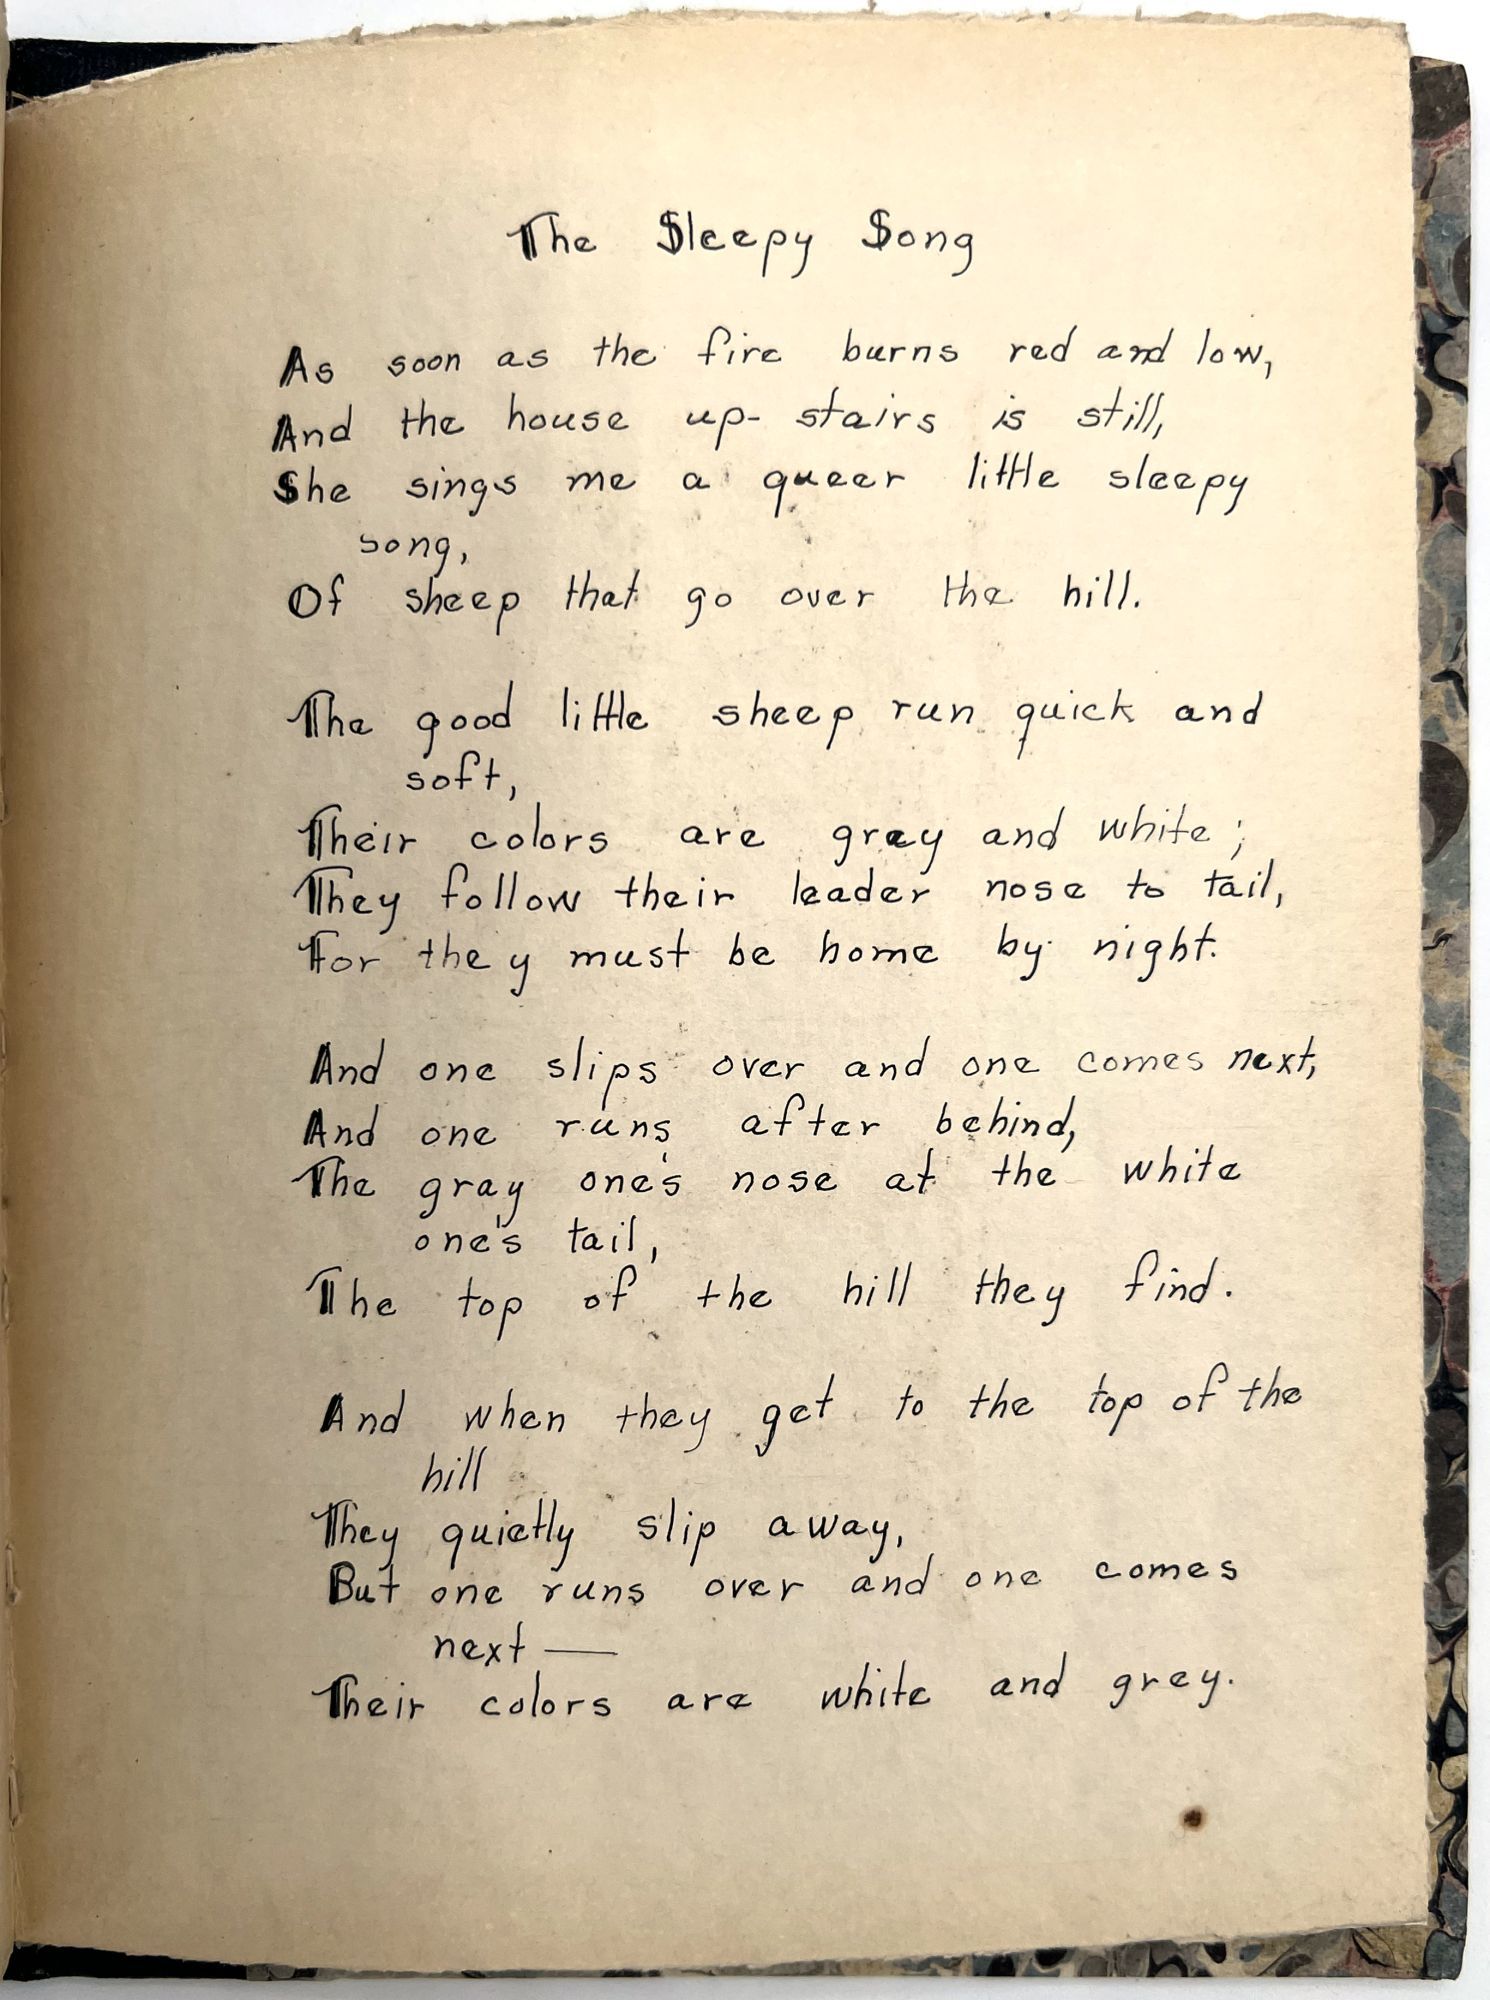 The Sleepy Song
As soon as the fire burns red and low,
And the house up-stairs is still,
She sings me a queer little sleepy
song,
Of sheep that go over the hill.
The good little sheep run quick and
soft,
Their colors are gray and white;
They follow their leader nose to tail,
For they must be home by night.
And one slips over and one comes next,
And one runs after behind,
The gray one's nose at the white
one's tail,
The top of the hill they find.
And when they get to the top of the
hill
They quietly slip away,
But one runs over and one comes
next —
Their colors are white and grey.